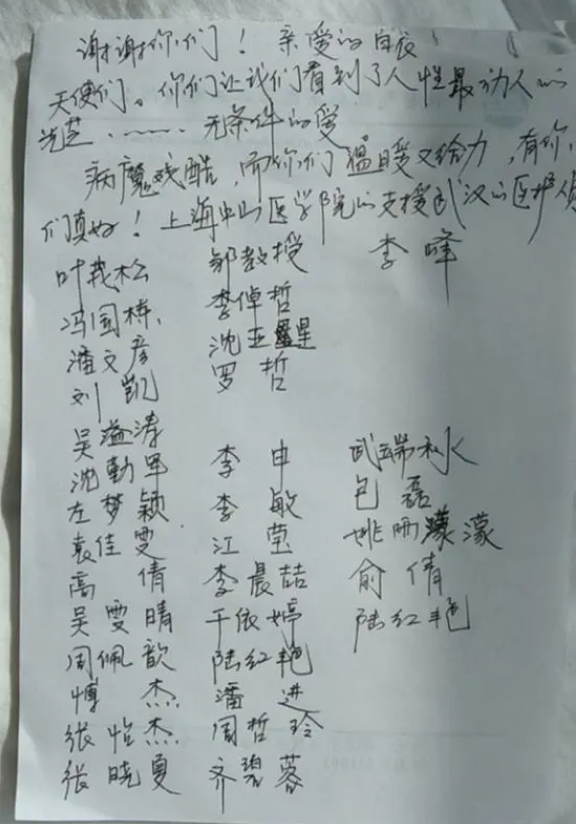 谢谢你们！亲爱的白衣
天使们。你们让我们看到了人性最动人的
光芒……无条件的爱
病魔残酷，而你们温暖又给力，有你
们真好！上海中山医学院的支援武汉的医护
叶茂松 邹教授 李峰
冯国栋 李倬哲
潘文彦 沈亚星
刘凯 罗哲
吴溢涛
沈勤军 李申 武端水
左梦颖 李敏 包磊
袁佳雯 江莹 姚雨濛
高倩 李晨喆 俞倩
吴雯晴 于依婷 陆红艳
周佩歆 陆红艳
博杰 潘进
张怡杰 周哲玲
张晓夏 齐碧蓉